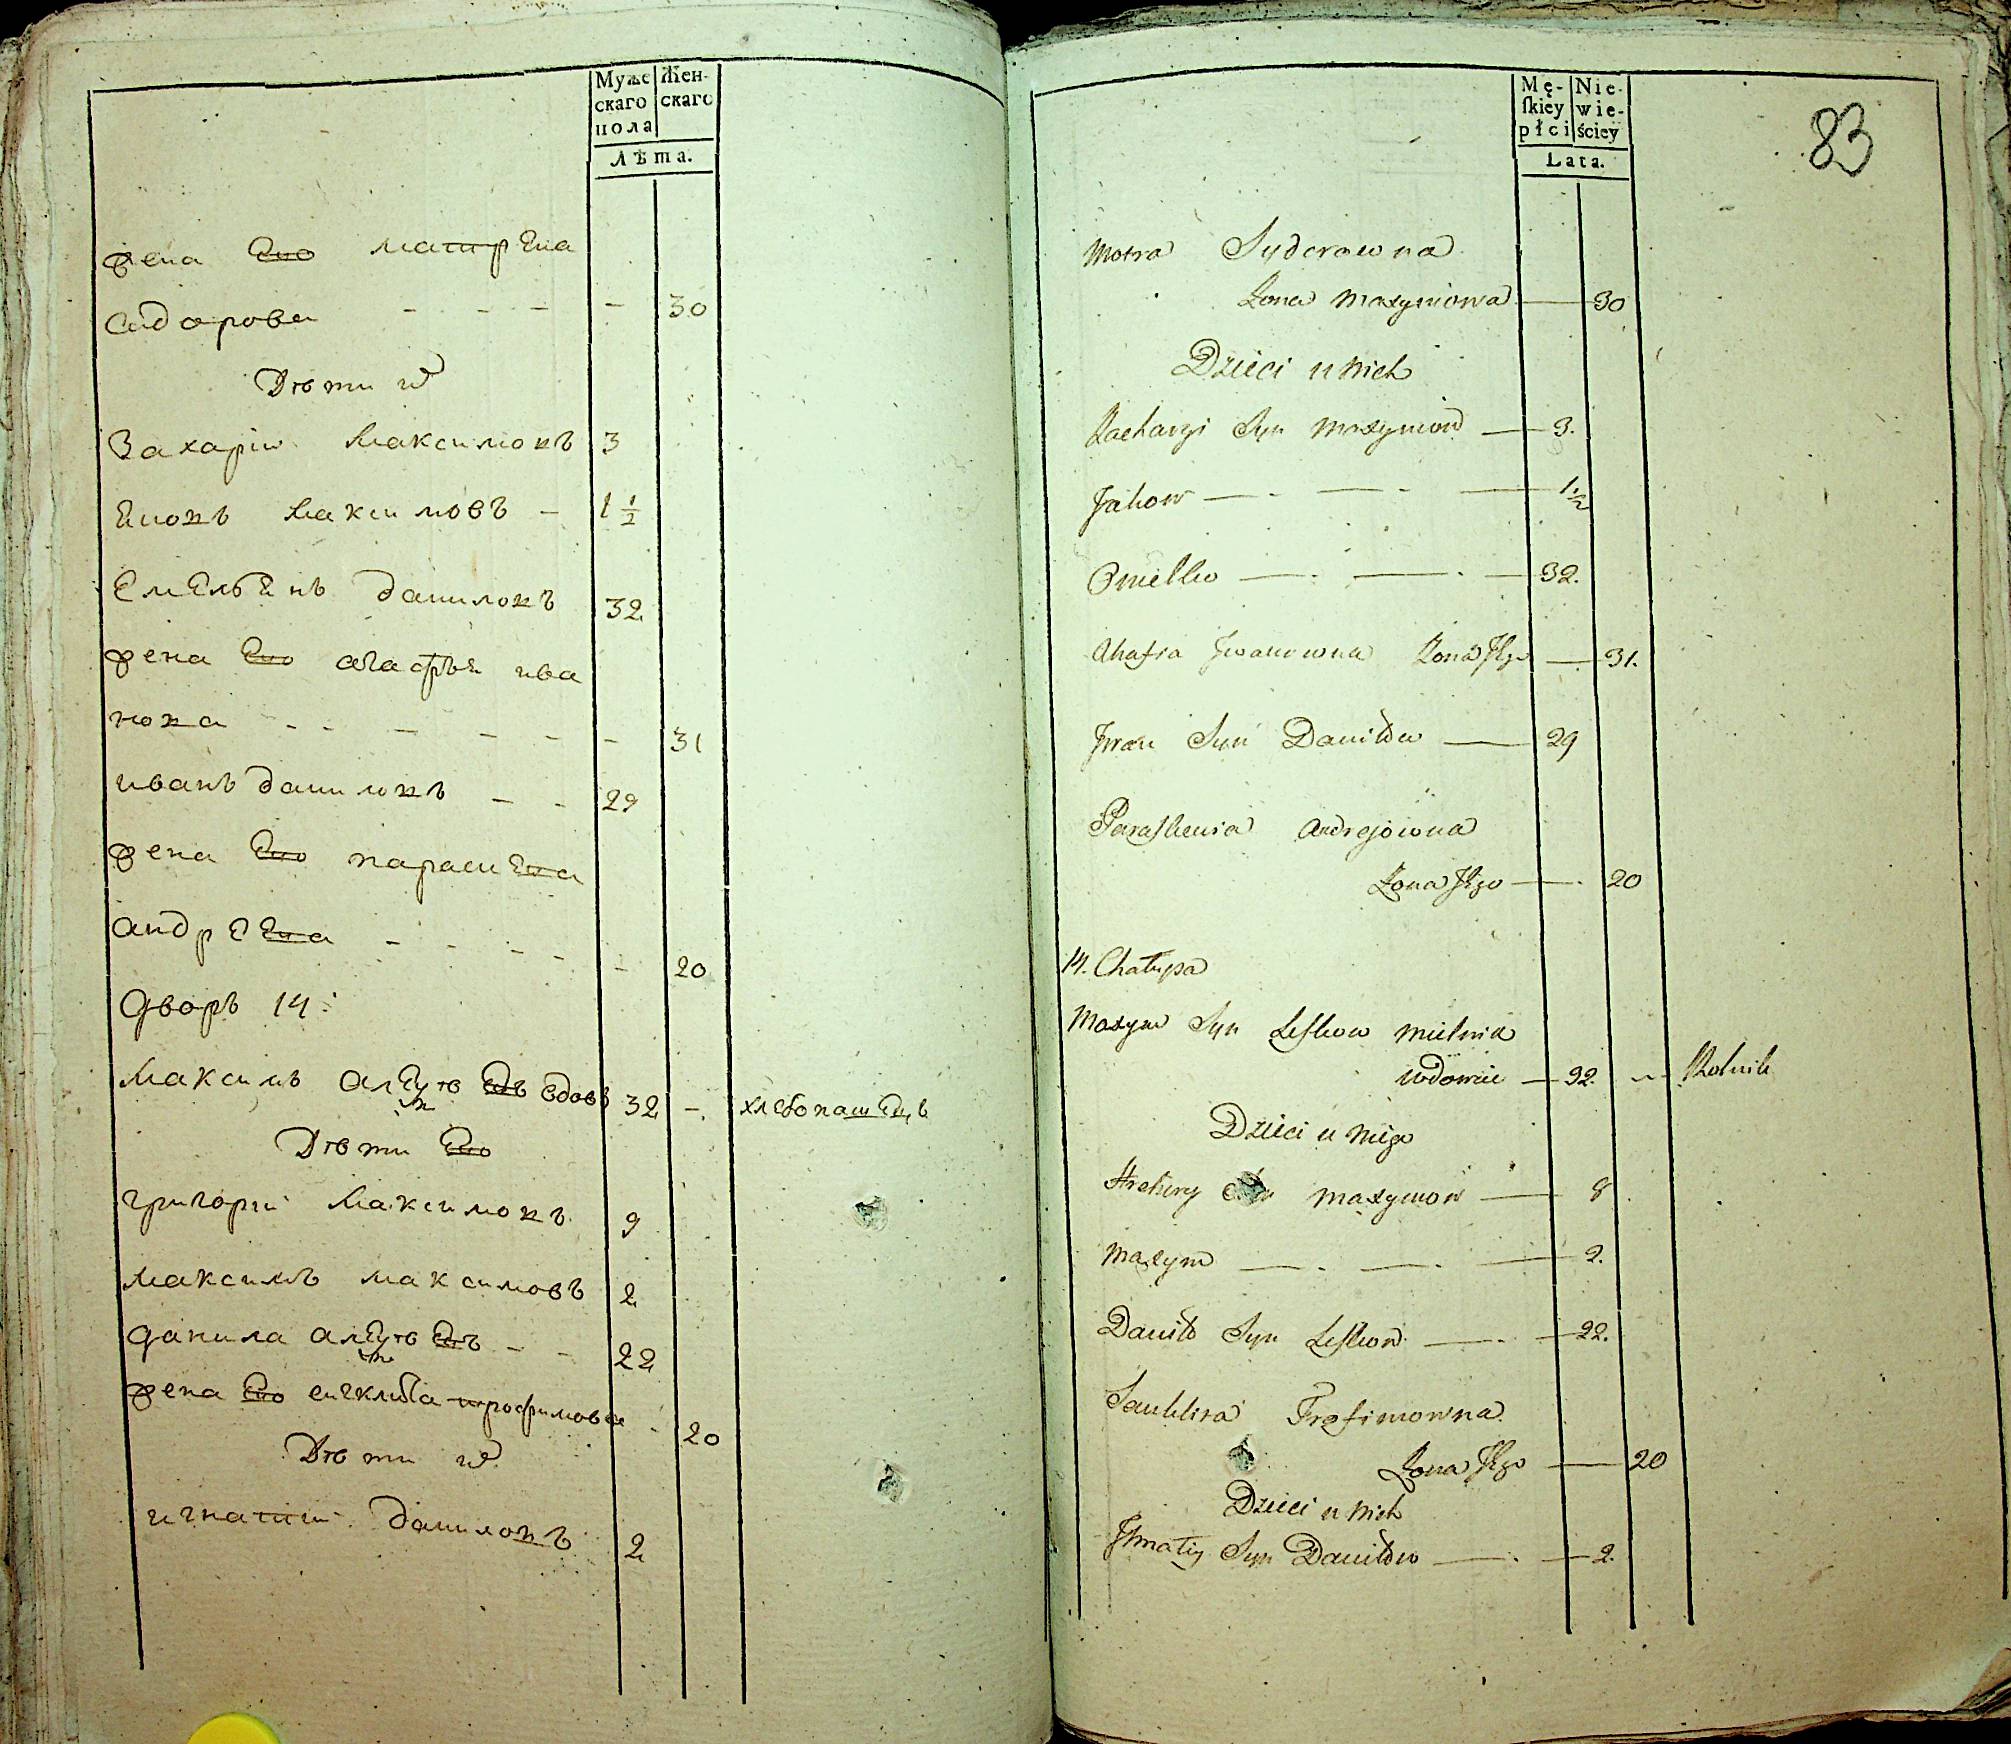 Муже
скаго
пола
Жен-
скаго
Лѣта.
жена Ево матрена
сидорова - - - - 30
Дѣти их
Захарій Максимовъ 3
Яковъ Максимовъ - 1 1/2
Емельянъ даниловъ 32
жена Ево агафья ива
нова - - - - - - 31
иванъ даниловъ - - 29
жена Ево параске
андреева - - - - - 20
дворъ 14:
Максимъ вдовъ 32 - хлебопашецъ
Дѣти Ево
григорій Максимовъ 9
максимъ максимовъ 2
данила - - 22
жена Ево трофимова 20
Дѣти их
игнатий даниловъ 2
Mę-
skiey
płci
Nie-
wie-
ściey
Lata.
83
Motra Syderowna
Żona Maxymowa — 30
Dzieci u Nich
Zacharyi Syn Maxymow — 3.
Jakow — . — . — 1 1/2
Omelko — . — . — 32.
Ahafia Jwanowna Żona Jego — 31.
Jwan Syn Daniłow — 29
Paraskewia Andrejowna
Żona Jego — . 20
14. Chałupa
Maxym Syn Leskow
wdowiec — 32. Rolnik
Dzieci u Niego
Hrehory Syn Maxymow — 8
Maxym — . — . — 2.
Daniło Syn Leskow — . — 22.
Trofimowna
Żona Jego — 20
Dzieci u Nich
Jhnatiy Syn Daniłow — . — 2.